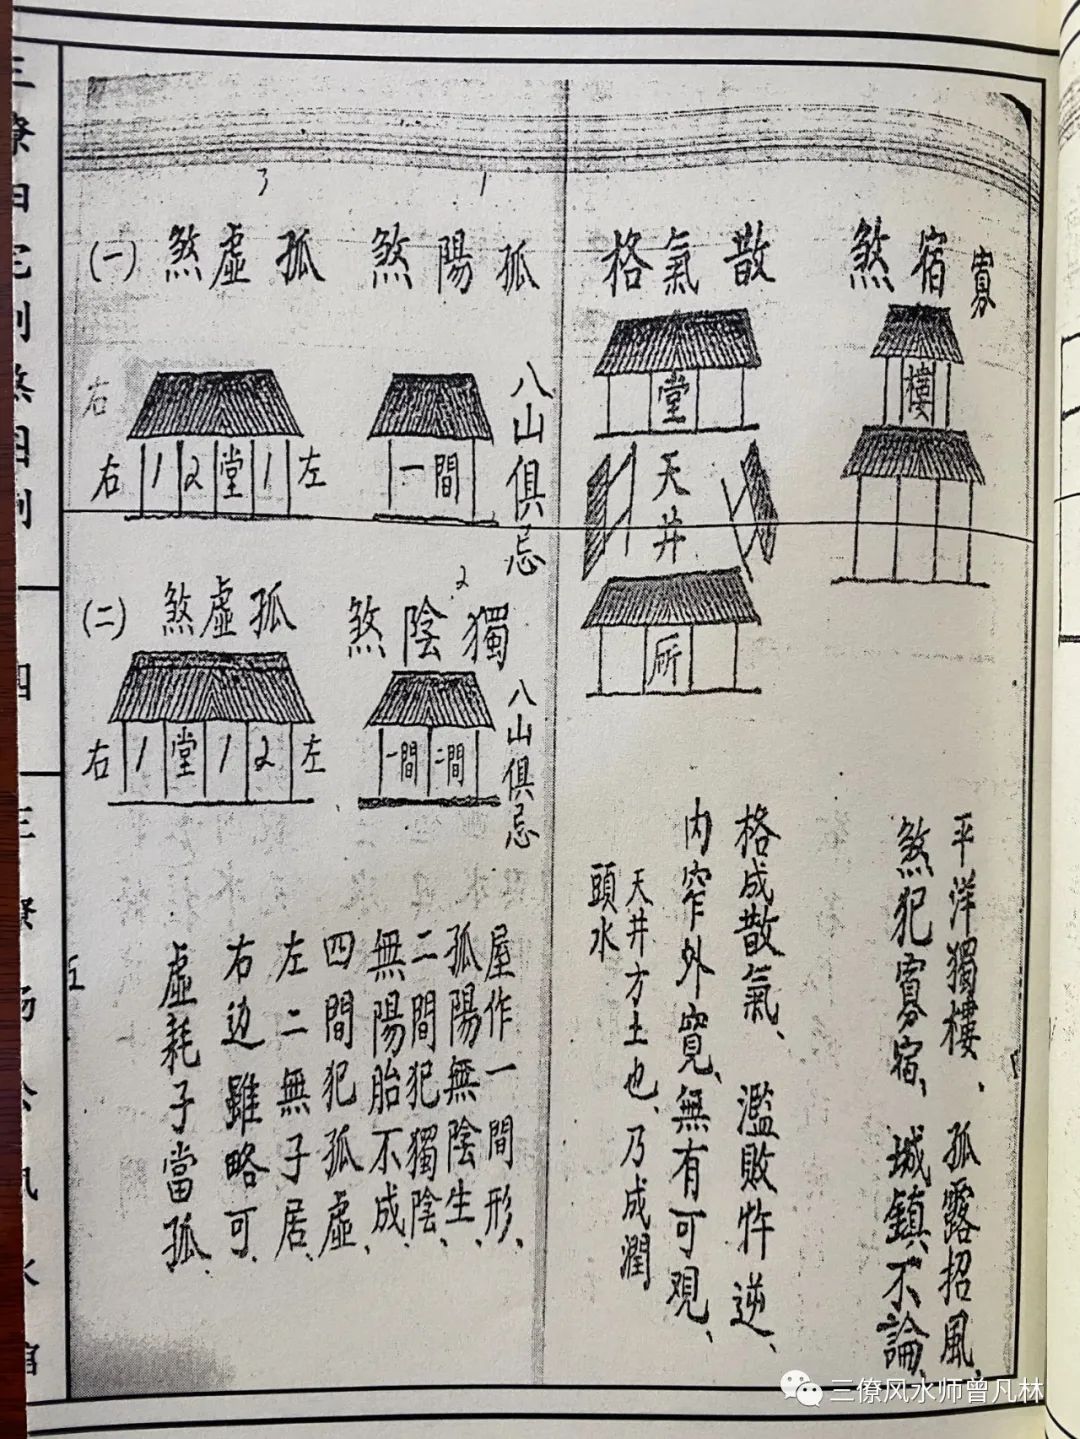 寡宿煞
樓
平洋獨樓、孤露招風、
煞犯寡宿、城鎮不論、
散氣格
堂
天井
所
格成散氣、濫敗牪逆、
內窄外寬、無有可观、
天井方土也、乃成潤
頭水
1
孤陽煞
一間
八山俱忌
2
獨陰煞
一間 二間
八山俱忌
3
孤虛煞 (一)
右
右 1 2 堂 1 左
孤虛煞 (二)
右 1 堂 1 2 左
屋作一間形、
孤陽無陰生、
二間犯獨陰、
無陽胎不成、
四間犯孤虛、
左二無子居、
右边雖略可、
虛耗子當孤、
四
五
三僚风水师曾凡林